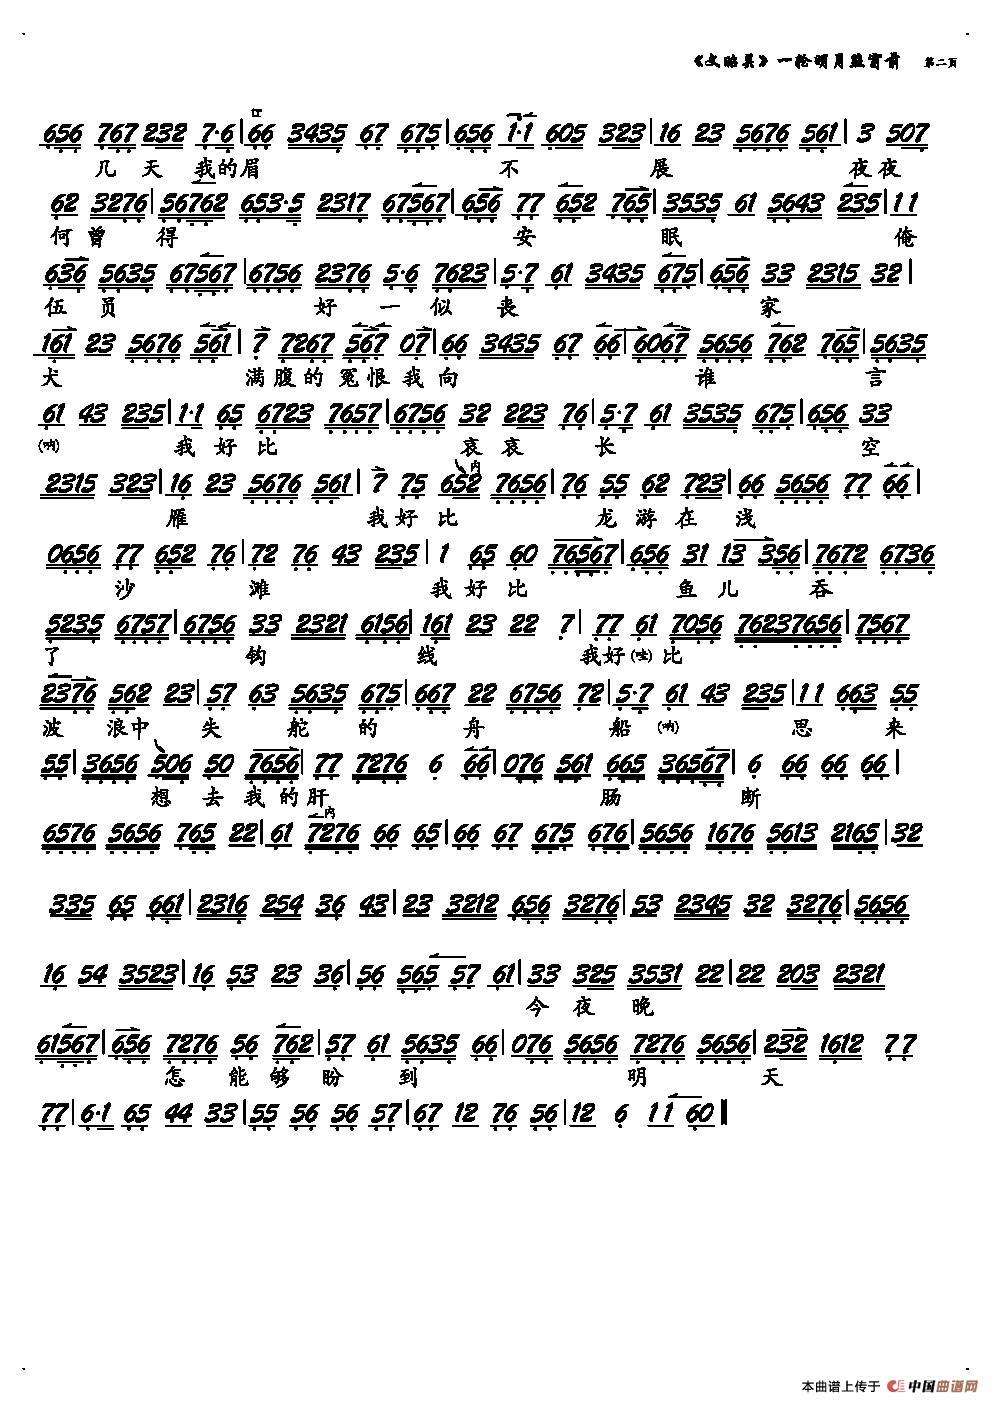 《文昭关》一轮明月照窗前 第二页
656 767 232 7·6|66 3435 67 675|656 1·1 605 323|16 23 5676 561|3 507
几天我的眉 不 展 夜夜
62 3276|56762 653·5 2317 67567|656 77 652 765|3535 61 5643 235|11
何曾 得 安 眠 俺
636 5635 67567|6756 2376 5·6 7623|5·7 61 3435 675|656 33 2315 32|
伍员 好一似丧 家
161 23 5676 561|7 7267 567 07|66 3435 67 66|6067 5656 762 765|5635
犬 满腹的冤恨我向 谁 言
61 43 235|1·1 65 6723 7657|6756 32 223 76|5·7 61 3535 675|656 33
(呐) 我好比 哀哀长 空
2315 323|16 23 5676 561|7 75 652 7656|76 55 62 723|66 5656 77 66|
内
雁 我好比 龙游在浅
0656 77 652 76|72 76 43 235|1 65 60 76567|656 31 13 356|7672 6736
沙 滩 我好比 鱼儿吞
5235 6757|6756 33 2321 6156|161 23 22 7|77 61 7056 76237656|7567
了 钩 线 我好(哇)比
2376 562 23|57 63 5635 675|667 22 6756 72|5·7 61 43 235|11 663 55
波浪中失舵的舟 船(呐) 思来
55|3656 506 50 7656|77 7276 6 66|076 561 665 36567|6 66 66 66|
想去我的肝 肠 断
内
6576 5656 765 22|61 7276 66 65|66 67 675 676|5656 1676 5613 2165|32
335 65 661|2316 254 36 43|23 3212 656 3276|53 2345 32 3276|5656
16 54 3523|16 53 23 36|56 565 57 61|33 325 3531 22|22 203 2321
今夜晚
61567|656 7276 56 762|57 61 5635 66|076 5656 7276 5656|232 1612 77
怎能够盼到 明 天
77|6·1 65 44 33|55 56 56 57|67 12 76 56|12 6 11 60‖
本曲谱上传于 中国曲谱网